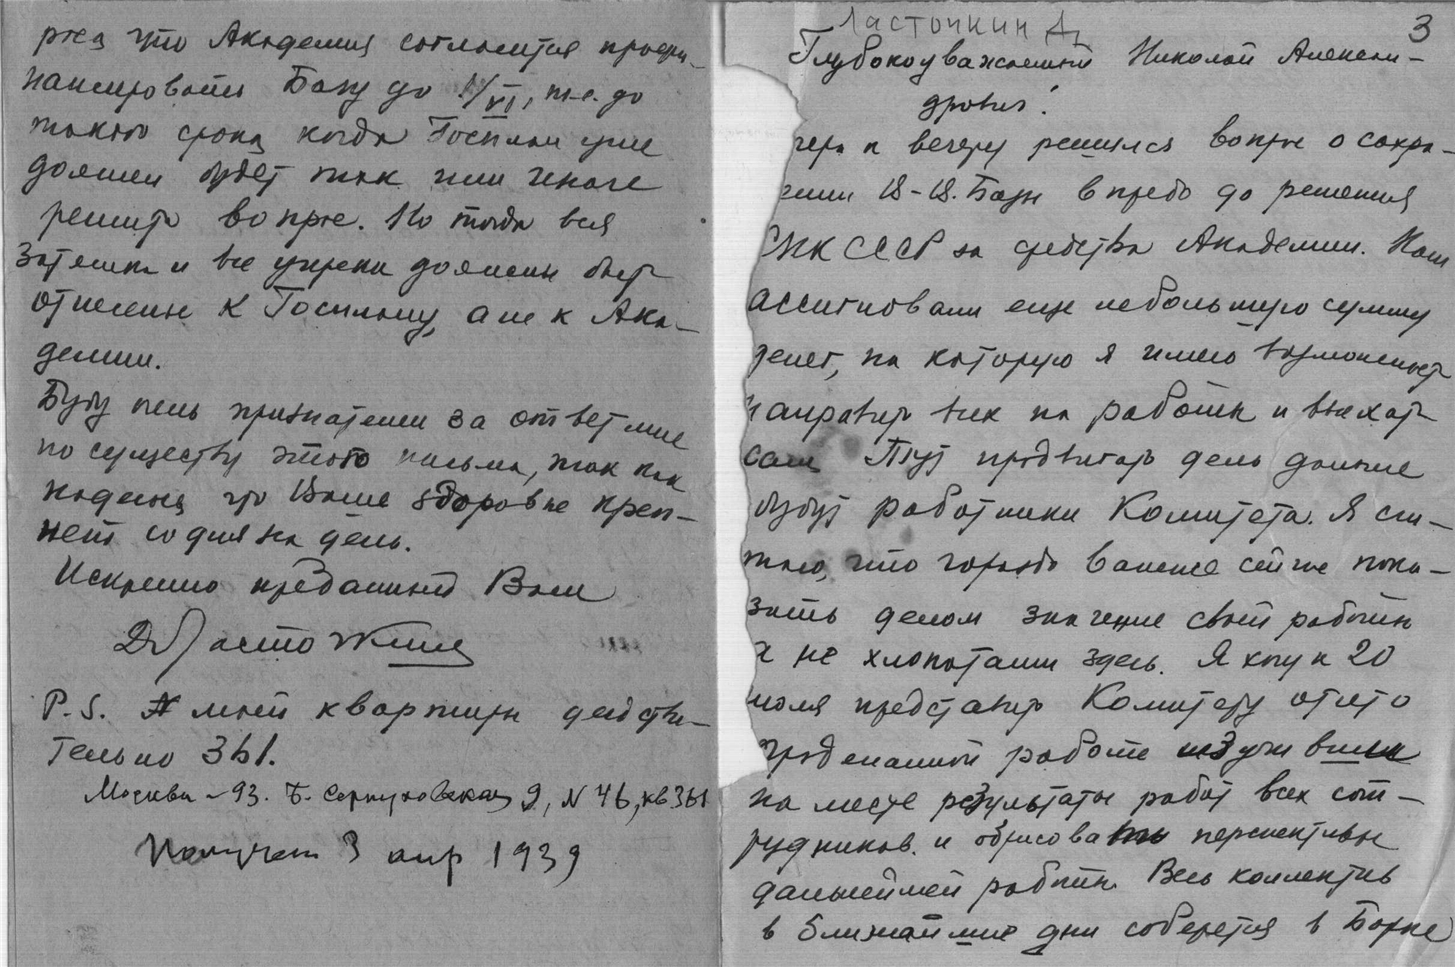 что Академия согласится профи-
нансировать Базу до 1/VI, т.е. до
такого срока когда Госплан уже
должен будет так или иначе
решить вопрос. Но тогда вся
затяжка и все упреки должны быть
отнесены к Госплану, а не к Ака-
демии.
Буду очень признателен за ответ мне
по существу этого письма, так как
надеюсь что Ваше здоровье креп-
нет со дня на день.
Искренно преданный Вам
ДЛасточкин
P.S. № моей квартиры действи-
тельно 361.
Москва-93. Б. Серпуховская, № 46, кв 361
Получен 3 апр 1939
Ласточкин Д.
3
Глубокоуважаемый Николай Алексан-
дрович!
чера к вечеру решился вопрос о сохра-
ении Базы впредь до решения
СНК СССР за средства Академии. Нам
ассигновали еще небольшую сумму
денег, на которую я имею возможность
направить всех на работы и выехать
сам. Тут продвигать дело дальше
будут работники Комитета. Я счи-
таю, что гораздо важнее сейчас пока-
зать делом значение своей работы
а не хлопотами здесь. Я хочу к 20
июля представить Комитету отчет о
проделанной работе изучив
на месте результаты работ всех сот-
рудников и обрисовать перспективы
дальнейшей работы. Весь коллектив
в ближайшие дни соберется в Борке